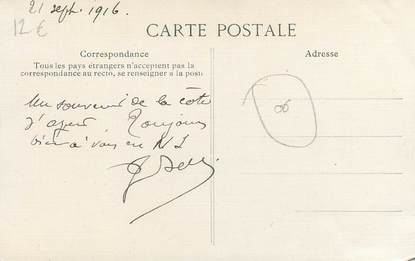 21 sept. 1916.
12 €
CARTE POSTALE
Correspondance
Tous les pays étrangers n'acceptent pas la
correspondance au recto, se renseigner à la poste
Adresse
06
Un souvenir de la côte
d'azur. Toujours
bien à vous en N S